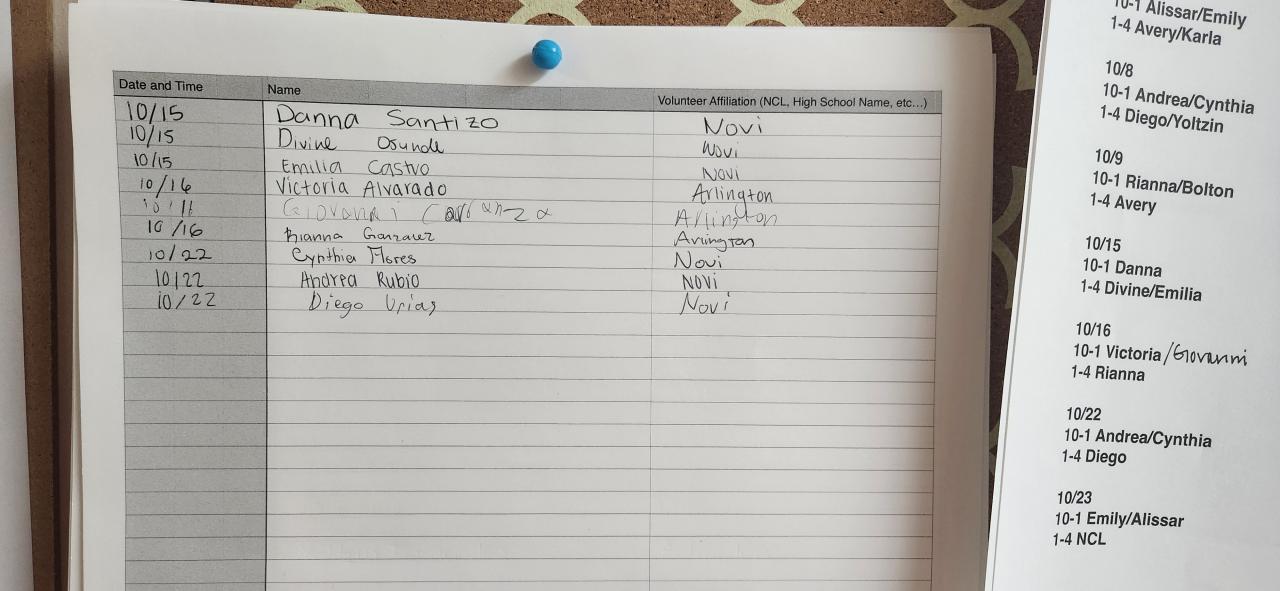 Date and Time Name Volunteer Affiliation (NCL, High School Name, etc...)
10/15 Danna Santizo Novi
10/15 Divine Osunde Novi
10/15 Emilia Castro Novi
10/16 Victoria Alvarado Arlington
Giovanni Carranza Arlington
10/16 Rianna Gonzalez Arlington
10/22 Cynthia Flores Novi
10/22 Andrea Rubio Novi
10/22 Diego Urias Novi
10-1 Alissar/Emily
1-4 Avery/Karla
10/8
10-1 Andrea/Cynthia
1-4 Diego/Yoltzin
10/9
10-1 Rianna/Bolton
1-4 Avery
10/15
10-1 Danna
1-4 Divine/Emilia
10/16
10-1 Victoria /Giovanni
1-4 Rianna
10/22
10-1 Andrea/Cynthia
1-4 Diego
10/23
10-1 Emily/Alissar
1-4 NCL